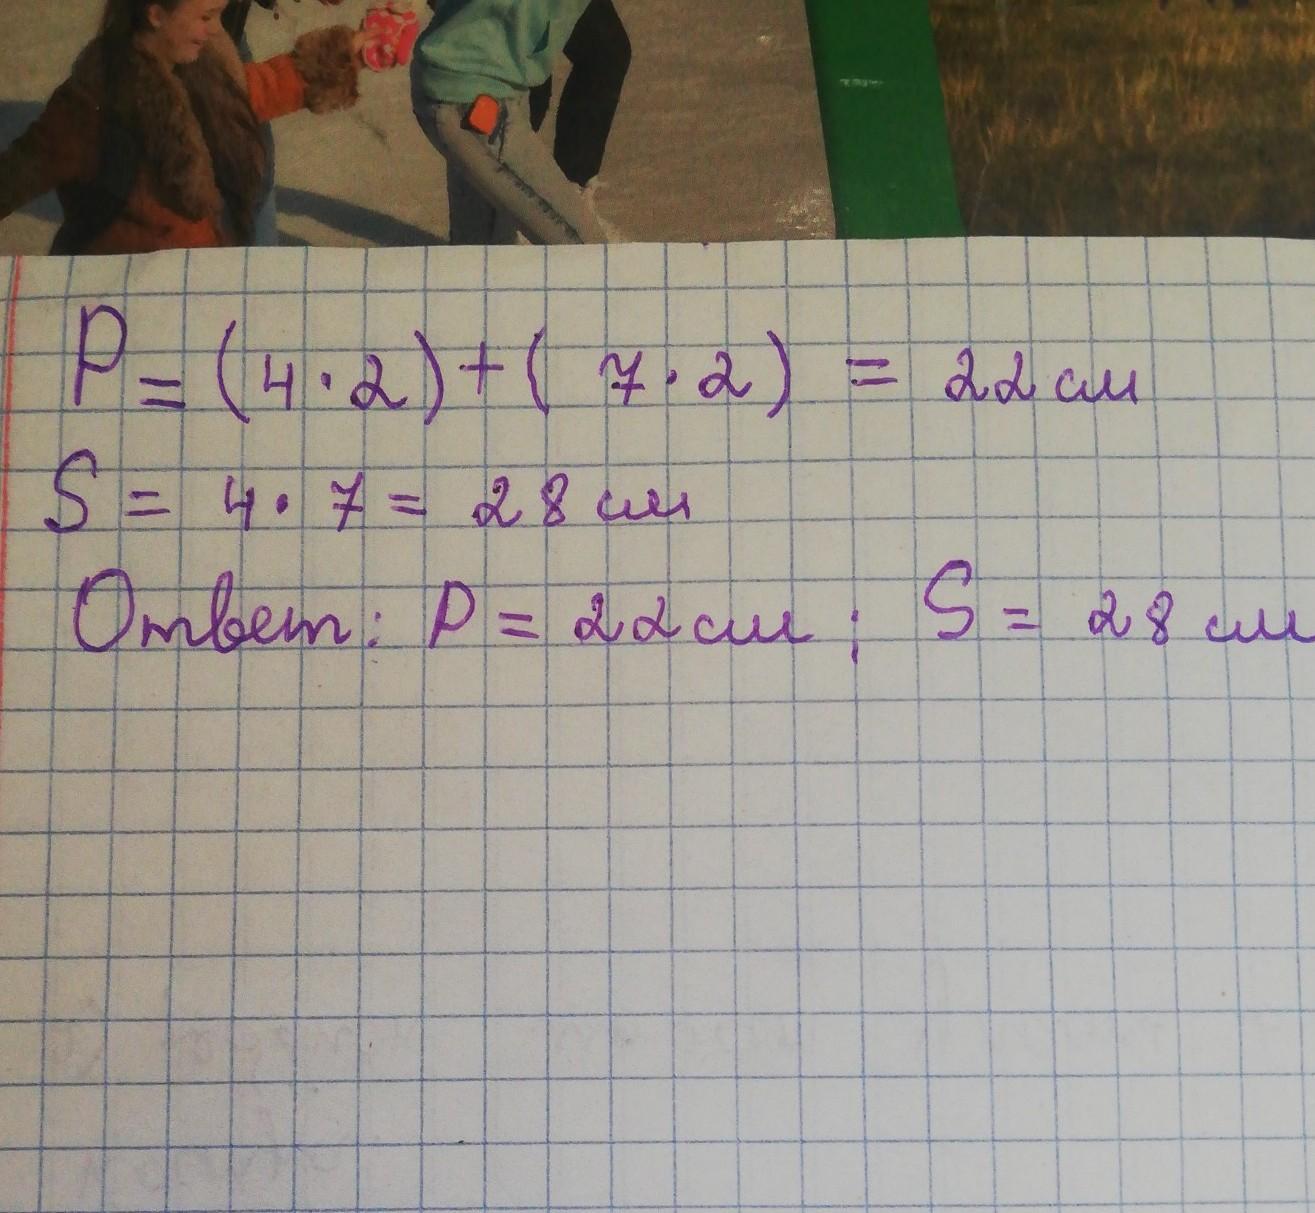 P = (4 · 2) + ( 7 · 2) = 22 см
S = 4 · 7 = 28 см
Ответ: P = 22 см ; S = 28 см